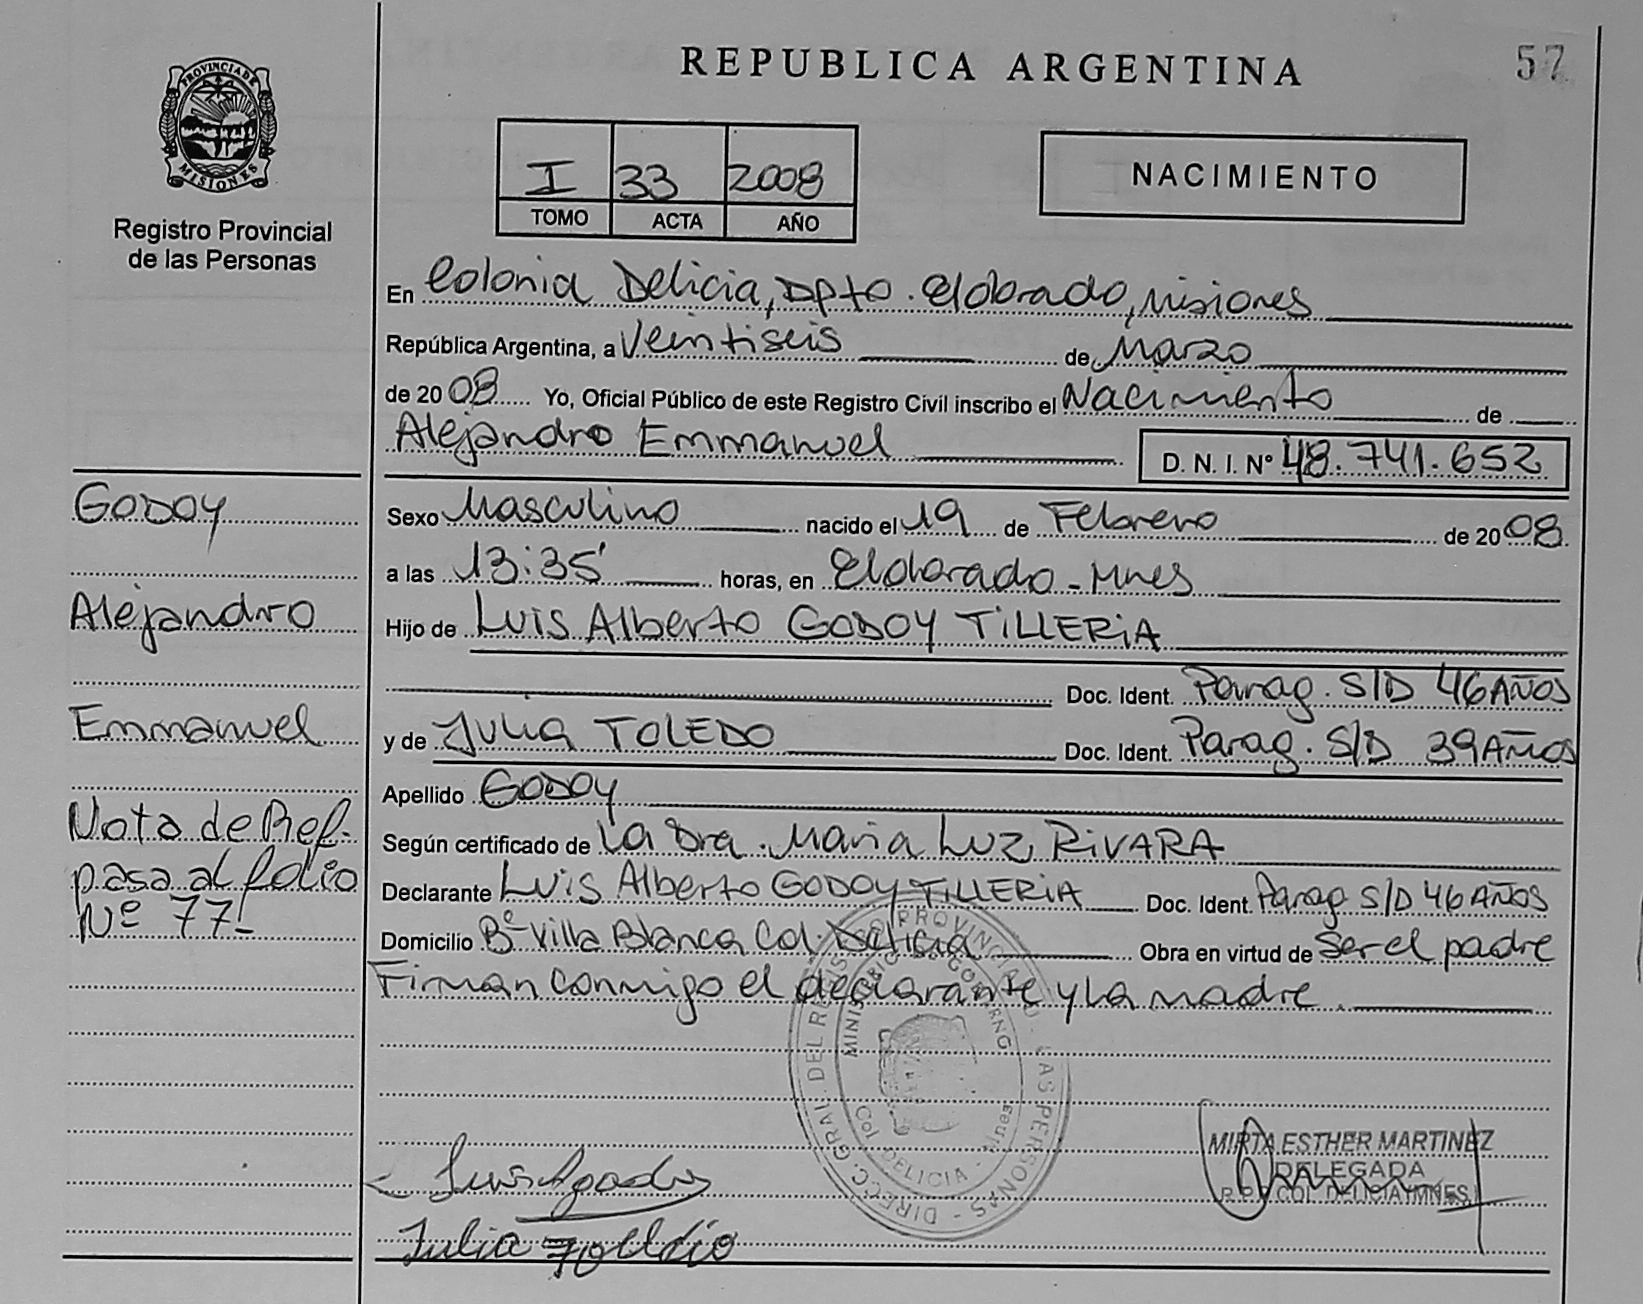 REPUBLICA ARGENTINA
57
PROVINCIA DE
MISIONES
Registro Provincial
de las Personas
I 33 2008
TOMO ACTA AÑO
NACIMIENTO
En Colonia Delicia, Dpto. Eldorado, Misiones
República Argentina, a Veintiseis de Marzo
de 2008 Yo, Oficial Público de este Registro Civil inscribo el Nacimiento de
Alejandro Emmanuel D. N. I. Nº 48.741.652
GODOY
Alejandro
Emmanuel
Nota de Ref.
pasa al folio
Nº 77-
Sexo Masculino nacido el 19 de Febrero de 2008
a las 13:35' horas, en Eldorado - Mnes
Hijo de Luis Alberto GODOY TILLERIA
Doc. Ident. Parag. S/D 46 AÑOS
y de Julia TOLEDO Doc. Ident. Parag. S/D 39 AÑOS
Apellido GODOY
Según certificado de La Dra. Maria Luz RIVARA
Declarante Luis Alberto GODOY TILLERIA Doc. Ident. Parag S/D 46 AÑOS
Domicilio Bº Villa Blanca Col. Delicia Obra en virtud de Ser el padre
Firman conmigo el declarante y La madre.
DIRECC. GRAL. DEL PROVINCIAL LAS PERSONAS
MINISTERIO GOBIERNO
COL. DELICIA - Mnes
MIRTA ESTHER MARTINEZ
DELEGADA
R.P.P. COL. DELICIA (MNES)
Julia